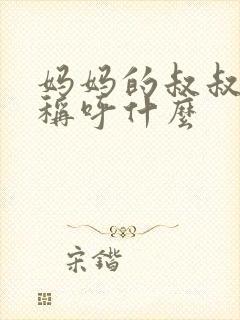 妈妈的叔叔
稱呼什麼
宋鍇